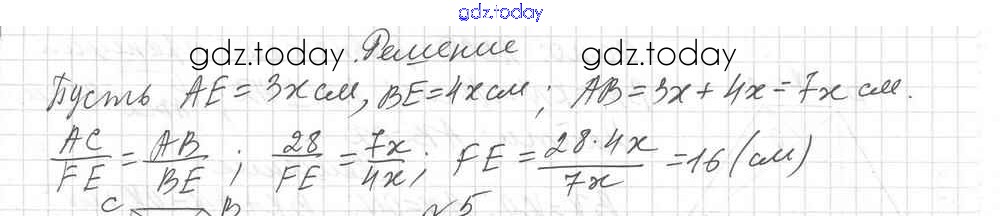 gdz.today
gdz.today Решение gdz.today
Пусть AE = 3x см, BE = 4x см; AB = 3x + 4x = 7x см.
AC/FE = AB/BE; 28/FE = 7x/4x; FE = 28·4x/7x = 16 (см)
C B №5